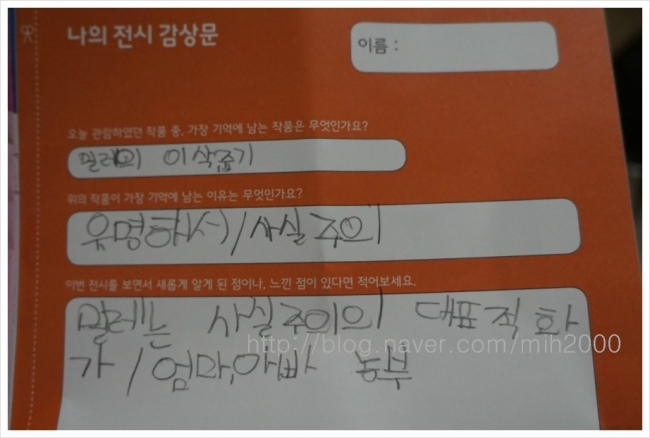 나의 전시 감상문
이름 :
오늘 관람하였던 작품 중, 가장 기억에 남는 작품은 무엇인가요?
밀레의 이삭줍기
위의 작품이 가장 기억에 남는 이유는 무엇인가요?
유명해서/사실주의
이번 전시를 보면서 새롭게 알게 된 점이나, 느낀 점이 있다면 적어보세요.
밀레는 사실주의의 대표적 화
가/엄마,아빠 농부
http://blog.naver.com/mih2000